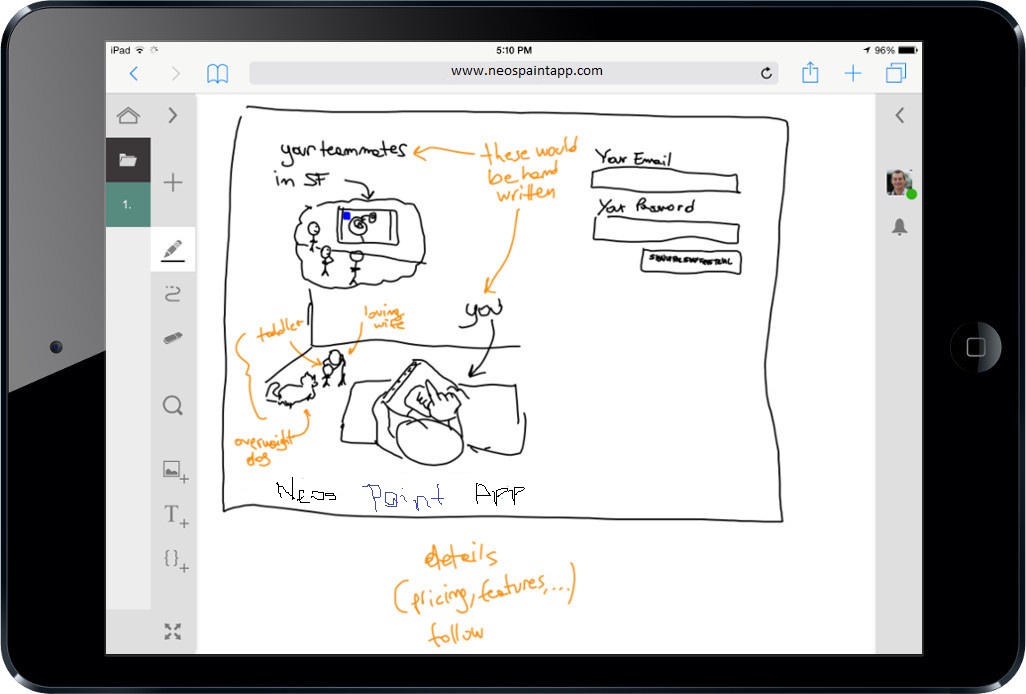 iPad
5:10 PM
96%
www.neospaintapp.com
1.
your teammates
in SF
these would
be hand
written
Your Email
Your Password
you
toddler
loving
wife
overweight
dog
Neos Paint App
details
(pricing, features, ...)
follow
T
{ }